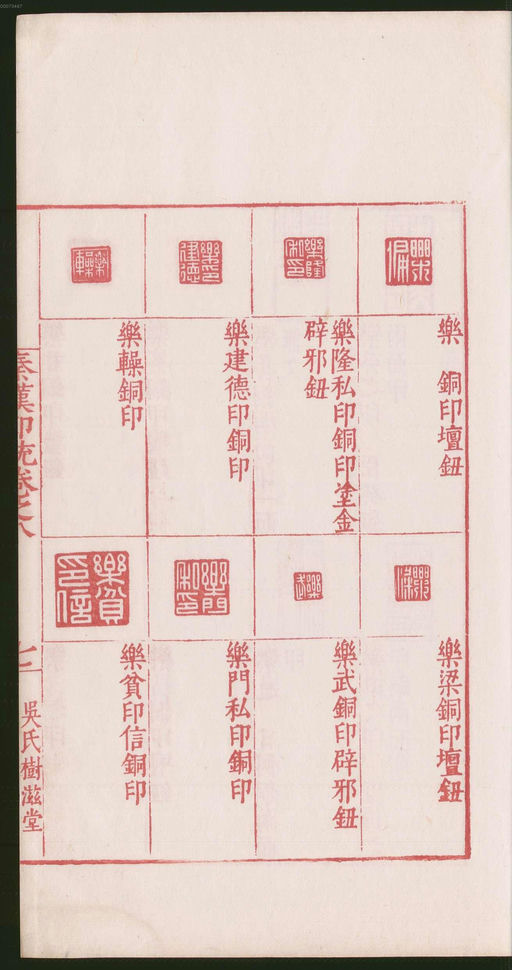 00073447
樂　銅印壇鈕
樂隆私印銅印塗金
辟邪鈕
樂建德印銅印
樂轈銅印
樂梁銅印壇鈕
樂武銅印辟邪鈕
樂門私印銅印
樂貧印信銅印
秦漢印統卷之八
七
吳氏樹滋堂